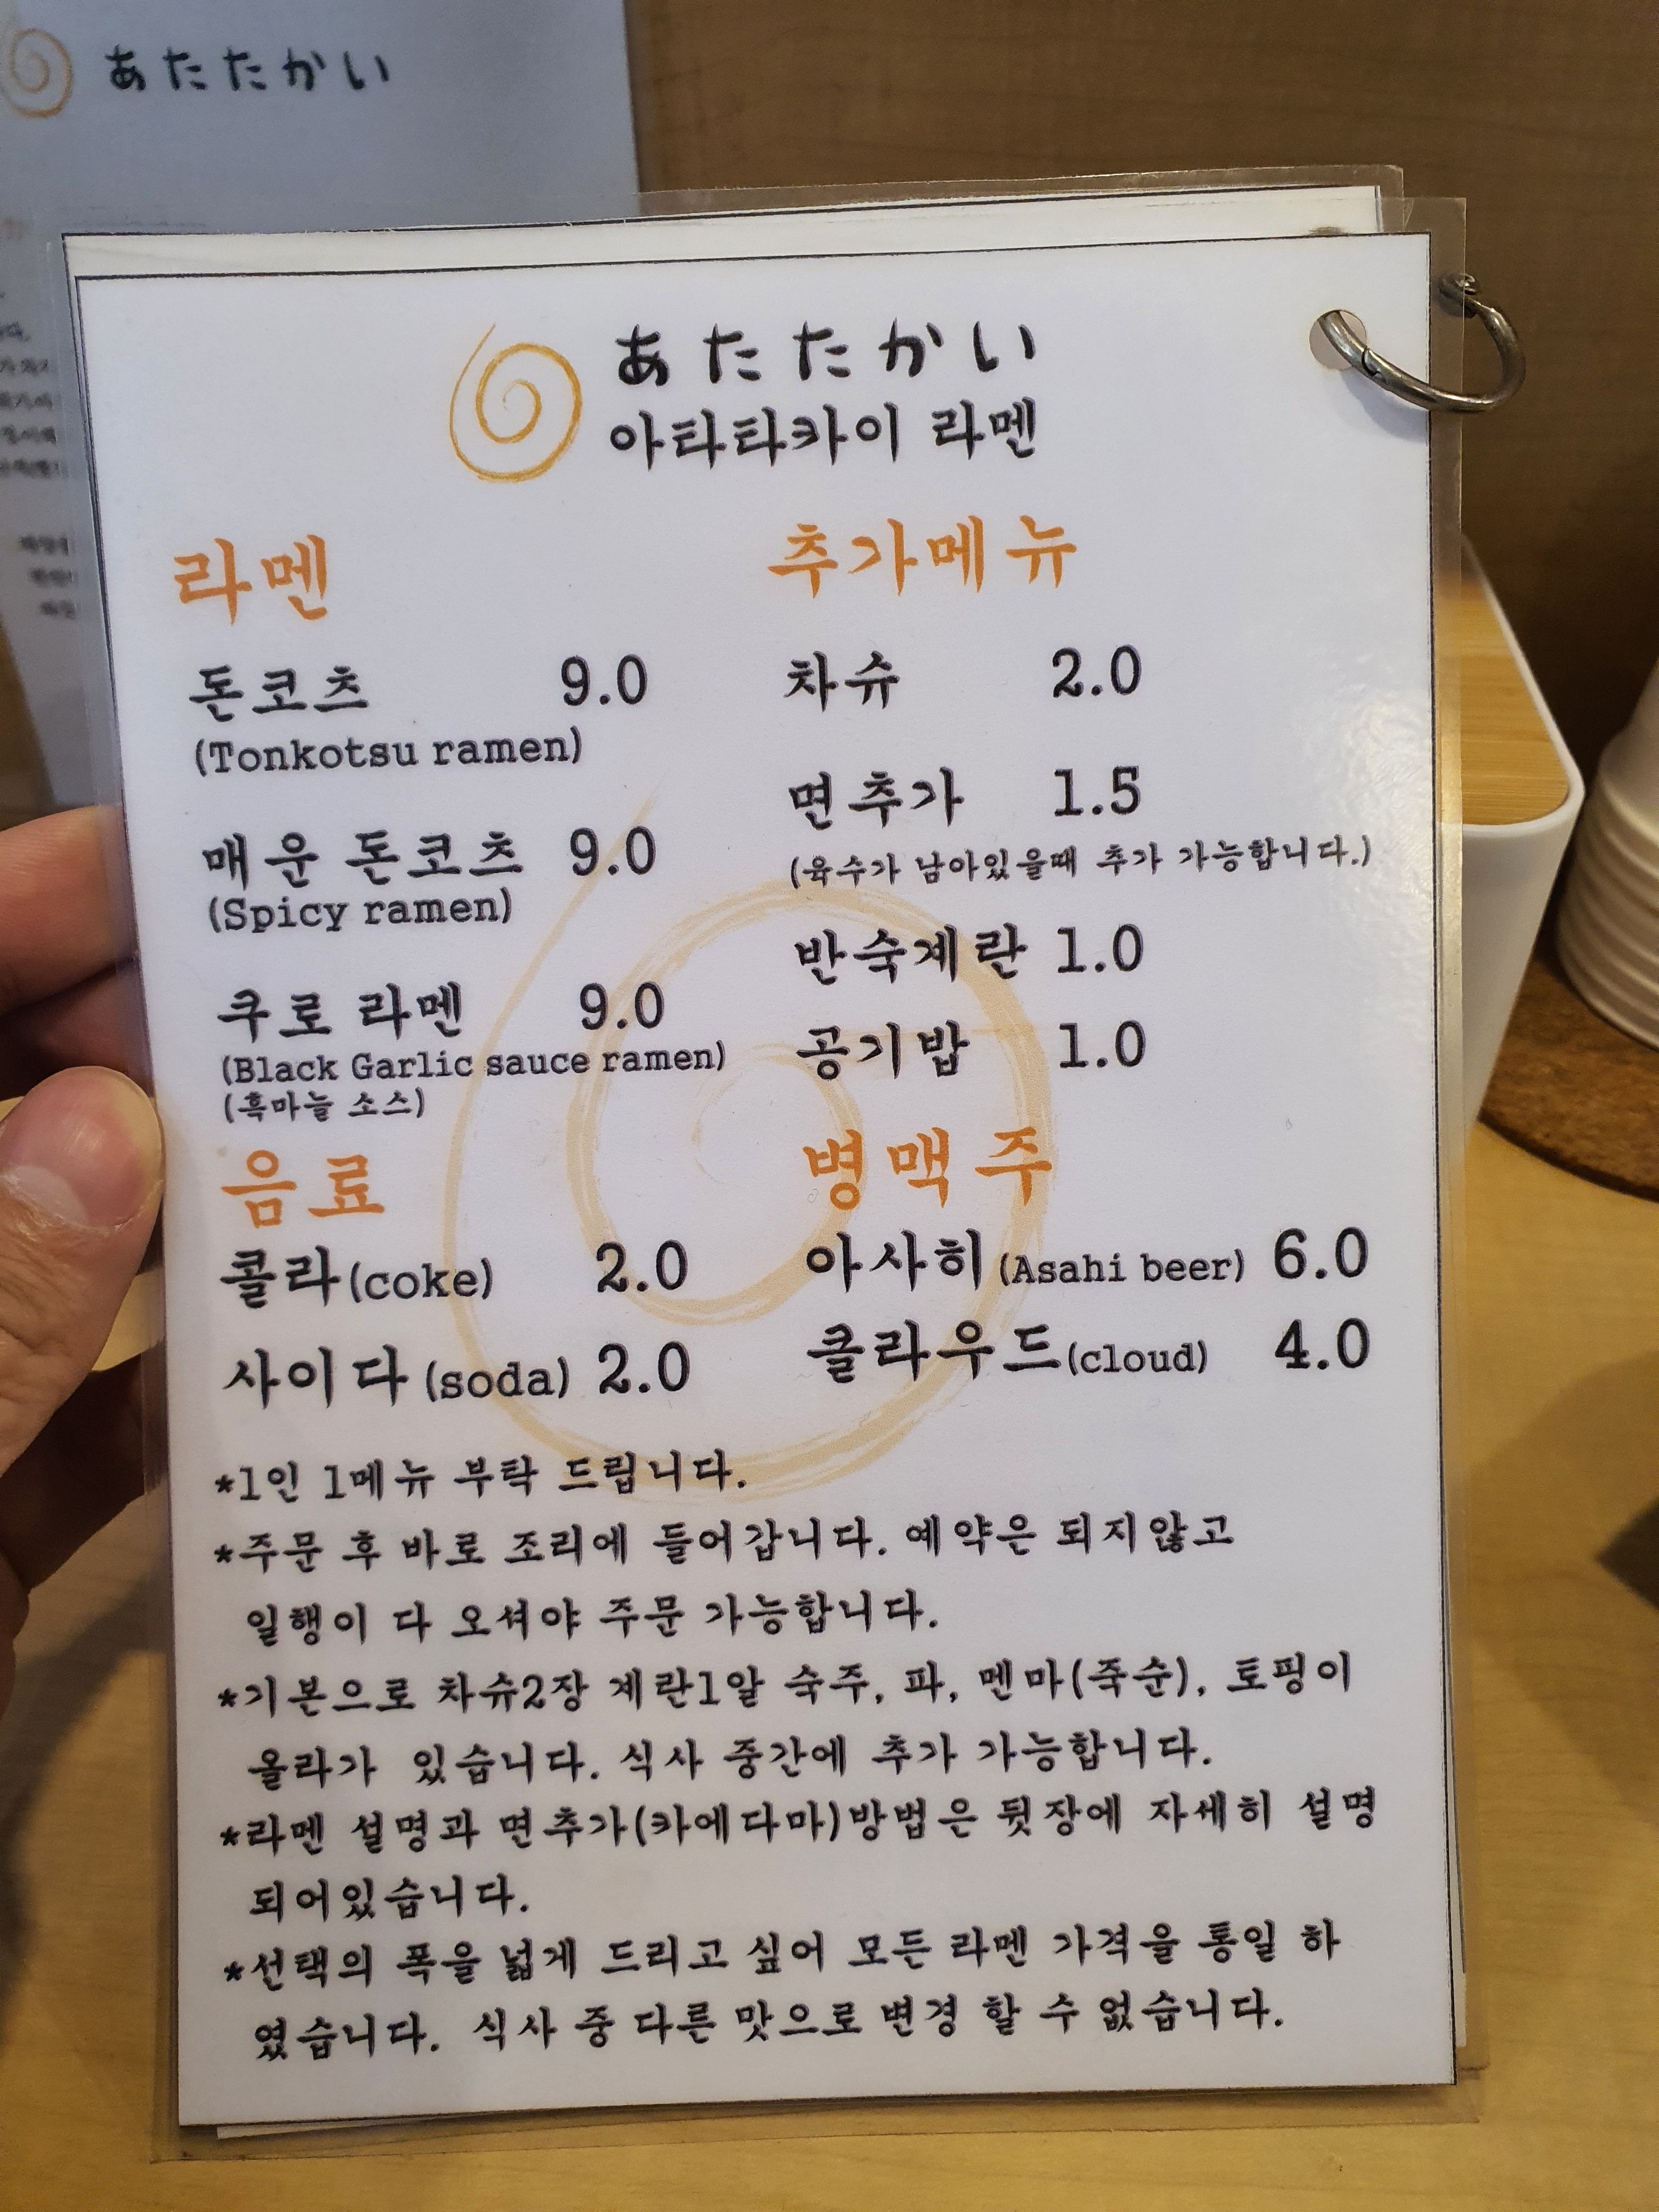 あたたかい
あたたかい
아타타카이 라멘
라멘
돈코츠 9.0
(Tonkotsu ramen)
매운 돈코츠 9.0
(Spicy ramen)
쿠로 라멘 9.0
(Black Garlic sauce ramen)
(흑마늘 소스)
추가메뉴
차슈 2.0
면추가 1.5
(육수가 남아있을때 추가 가능합니다.)
반숙계란 1.0
공기밥 1.0
음료
콜라(coke) 2.0
사이다(soda) 2.0
병맥주
아사히(Asahi beer) 6.0
클라우드(cloud) 4.0
*1인 1메뉴 부탁 드립니다.
*주문 후 바로 조리에 들어갑니다. 예약은 되지않고
일행이 다 오셔야 주문 가능합니다.
*기본으로 차슈2장 계란1알 숙주, 파, 멘마(죽순), 토핑이
올라가 있습니다. 식사 중간에 추가 가능합니다.
*라멘 설명과 면추가(카에다마)방법은 뒷장에 자세히 설명
되어있습니다.
*선택의 폭을 넓게 드리고 싶어 모든 라멘 가격을 통일 하
였습니다. 식사 중 다른 맛으로 변경 할 수 없습니다.